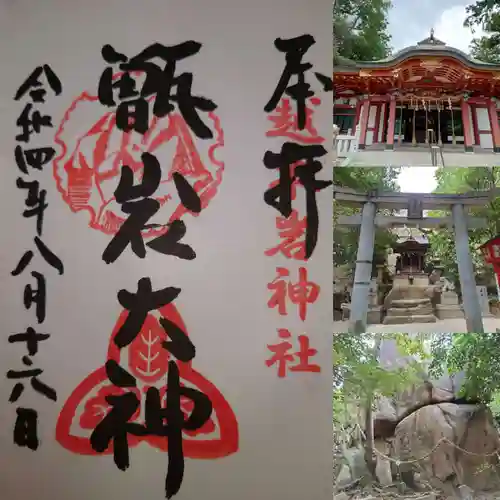 奉拝
越木岩神社
甑岩大神
令和四年八月十六日